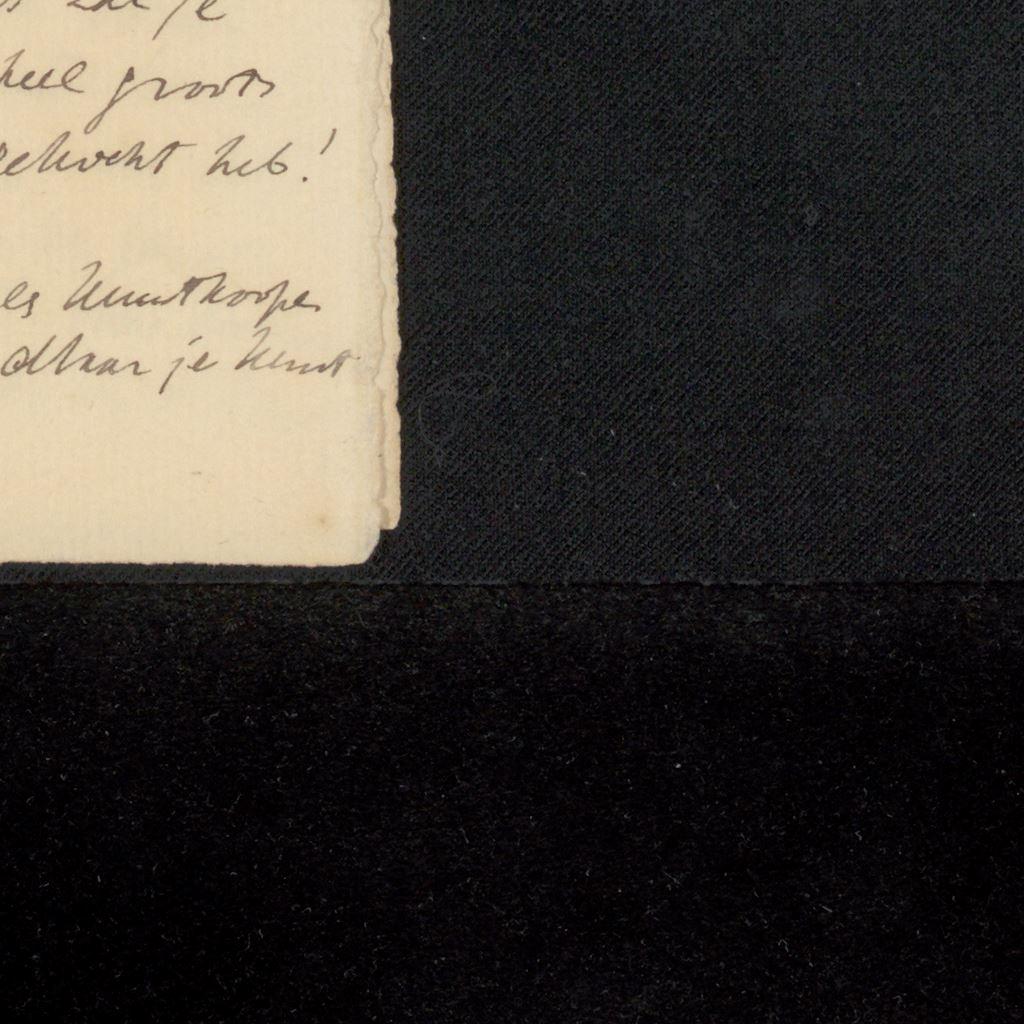 zal je
heel groots
gekocht heb!
es kunstkooper
je kunt